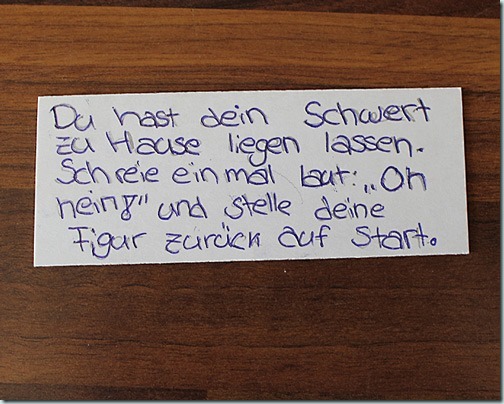 Du hast dein Schwert
zu Hause liegen lassen.
Schreie einmal laut: „Oh
nein!" und stelle deine
Figur zurück auf Start.